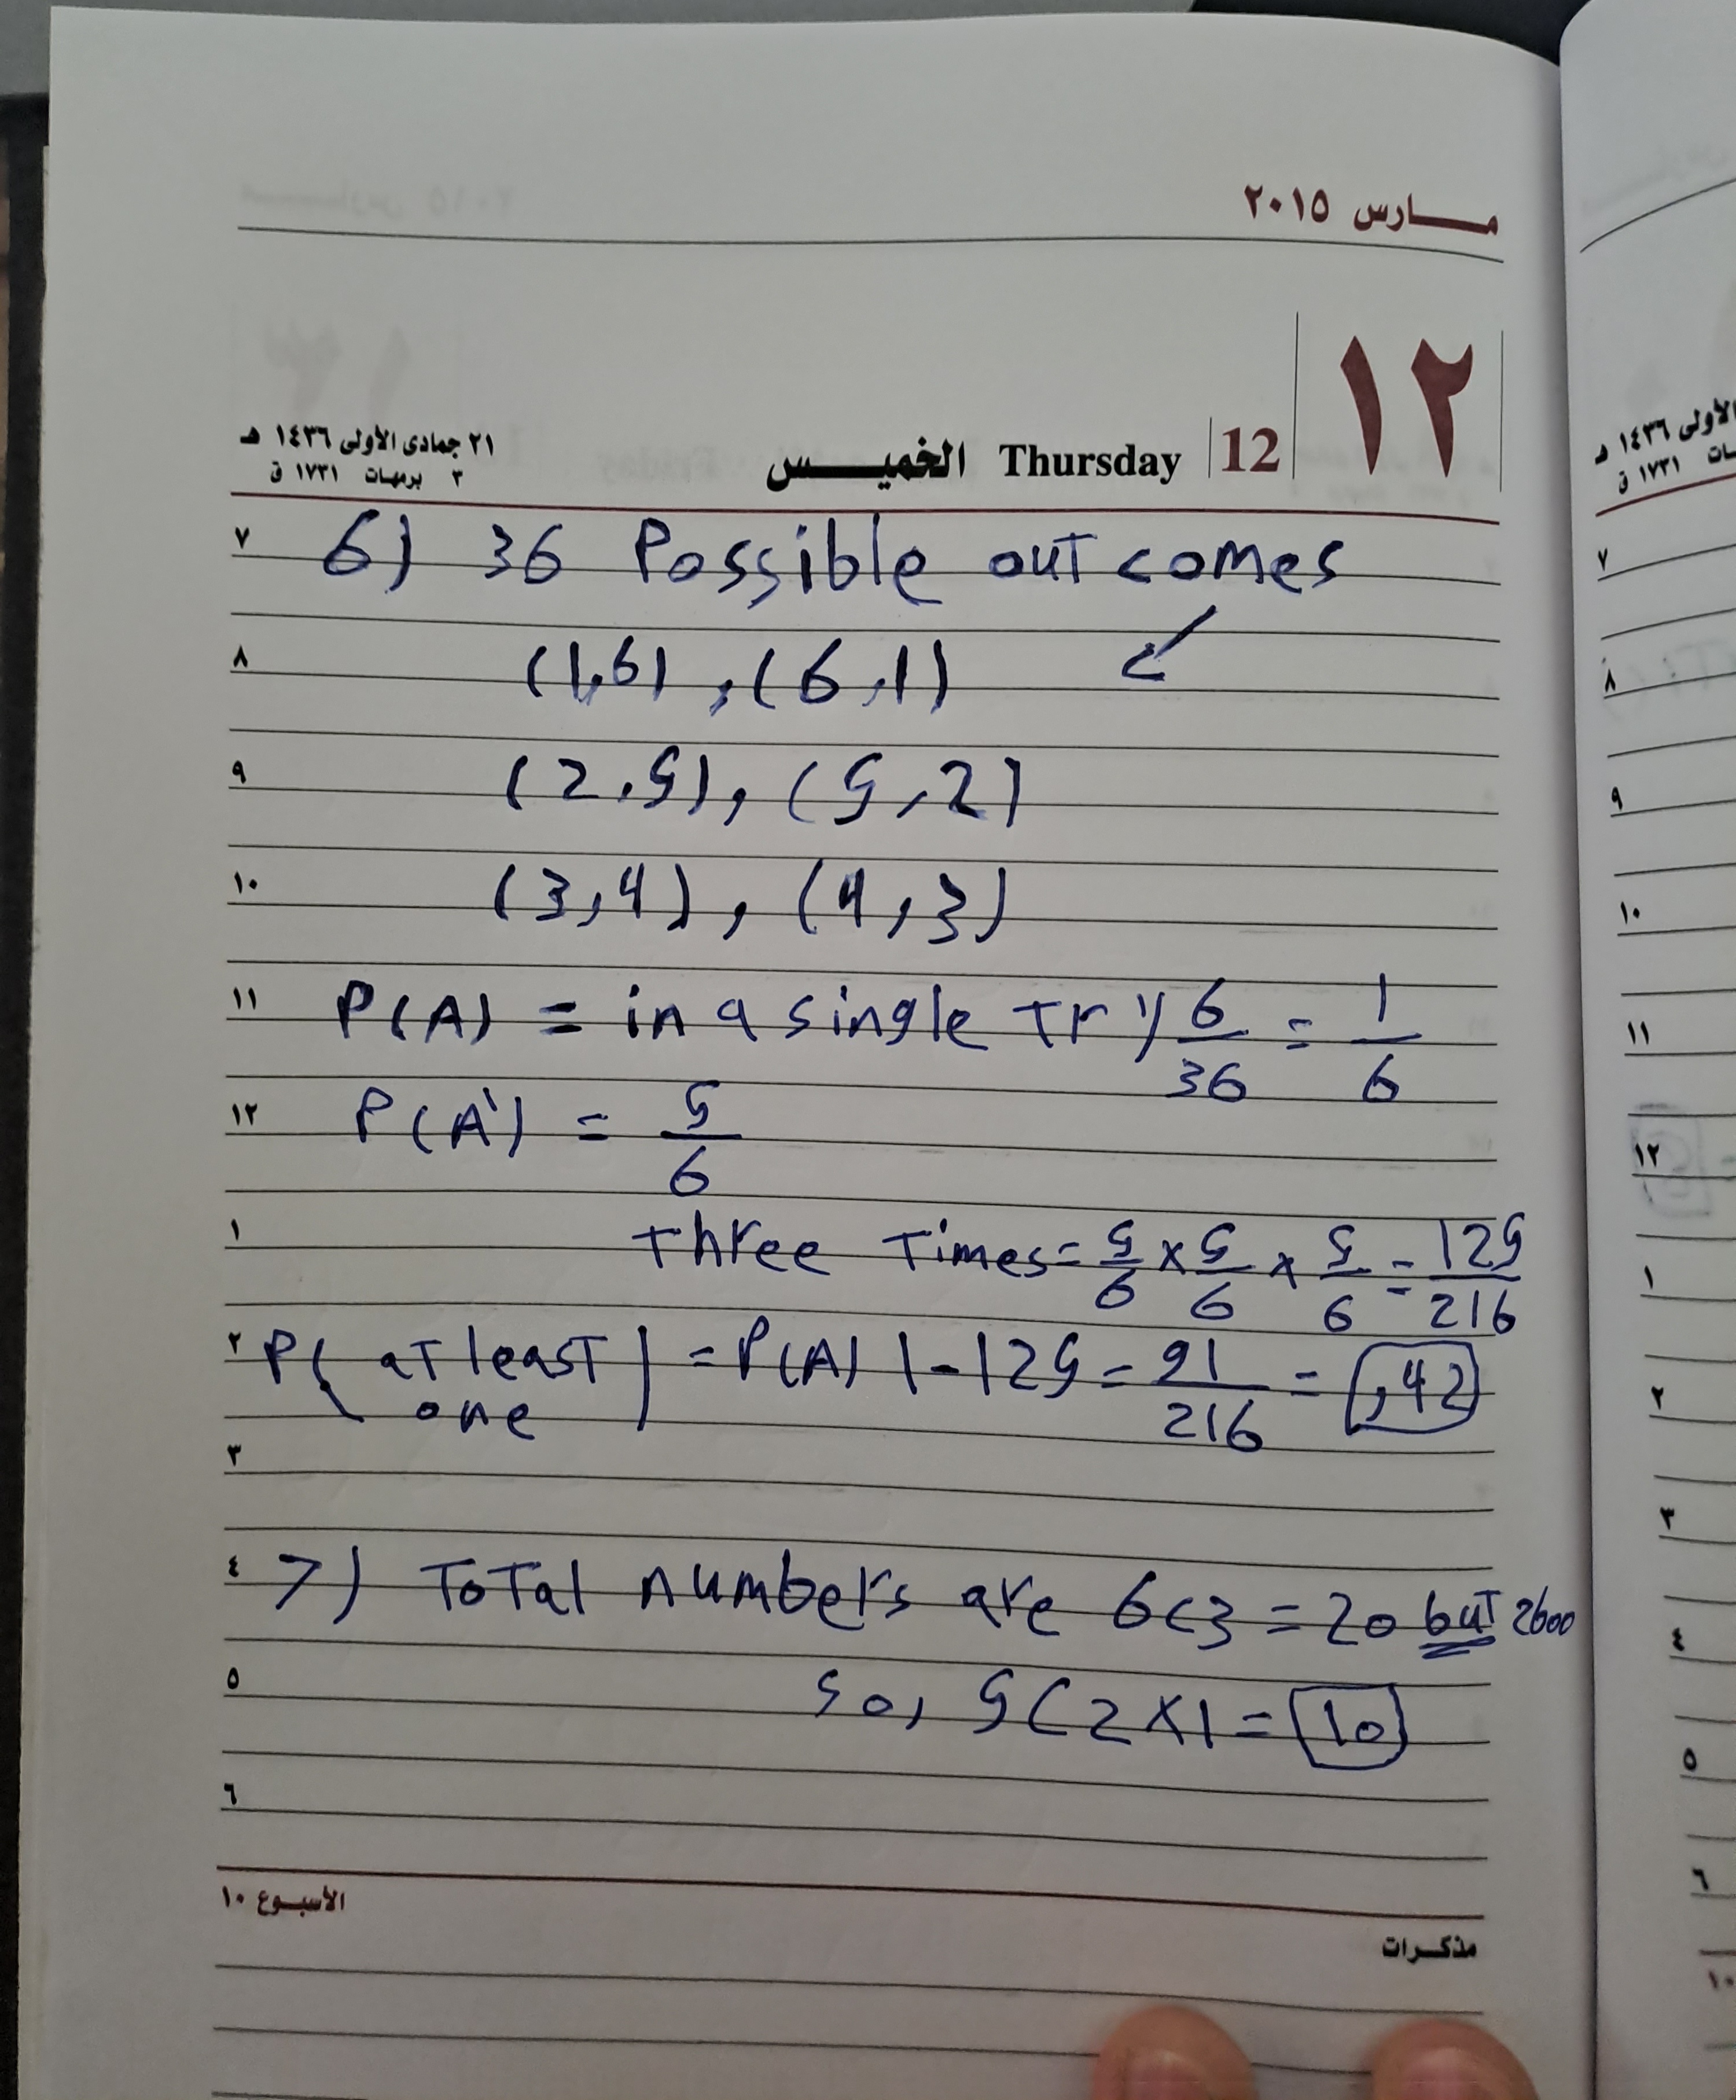 مارس ٢٠١٥
١٢
12
Thursday الخميس
٢١ جمادى الأولى ١٤٣٦ هـ
٣ برمهات ١٧٣١ ق
٧ 6) 36 Possible outcomes
٨ (1,6) , (6,1)
٩ (2,5) , (5,2)
١٠ (3,4) , (4,3)
١١ P(A) = in a single try 6/36 = 1/6
١٢ P(A') = 5/6
١ three Times = 5/6 × 5/6 × 5/6 = 125/216
٢ P(at least one) = P(A) 1 - 125 = 91/216 = ,42
٣
٤ 7) Total numbers are 6C3 = 20 but 2600
٥ so, 5C2 × 1 = 10
٦
الأسبوع ١٠
مذكرات
الأولى ١٤٣٦ هـ
١٧٣١ ق
٧
٨
٩
١٠
١١
١٢
١
٢
٣
٤
٥
٦
١٠